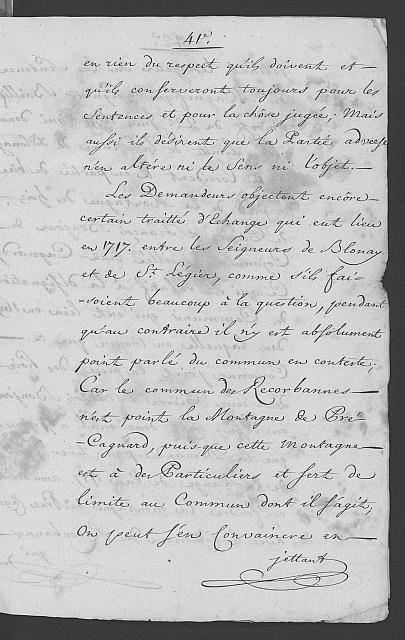 41e.
en rien du respect qu'ils doivent et —
qu'ils conserveront toujours pour les
Sentences et pour la chôse jugée; Mais
aussi ils désirent que la Partie adverse
n'en altére ni le Sens ni l'objet. —
Les Demandeurs objectent encore —
certain traitté d'Echange qui eut lieu
en 1717. entre les Seigneurs de Blonay
et de St. Légier, comme s'ils fai-
-soient beaucoup à la question, pendant
qu'au contraire il n'y est absolument
point parlé du commun en conteste;
Car le commun des Recorbannes —
n'est point la Montagne de Pré
Cagnard, puis-que cette Montagne —
est à des Particuliers et sert de
limite au Commun dont il s'agit,
On peut s'en Convaincre en —
jettant